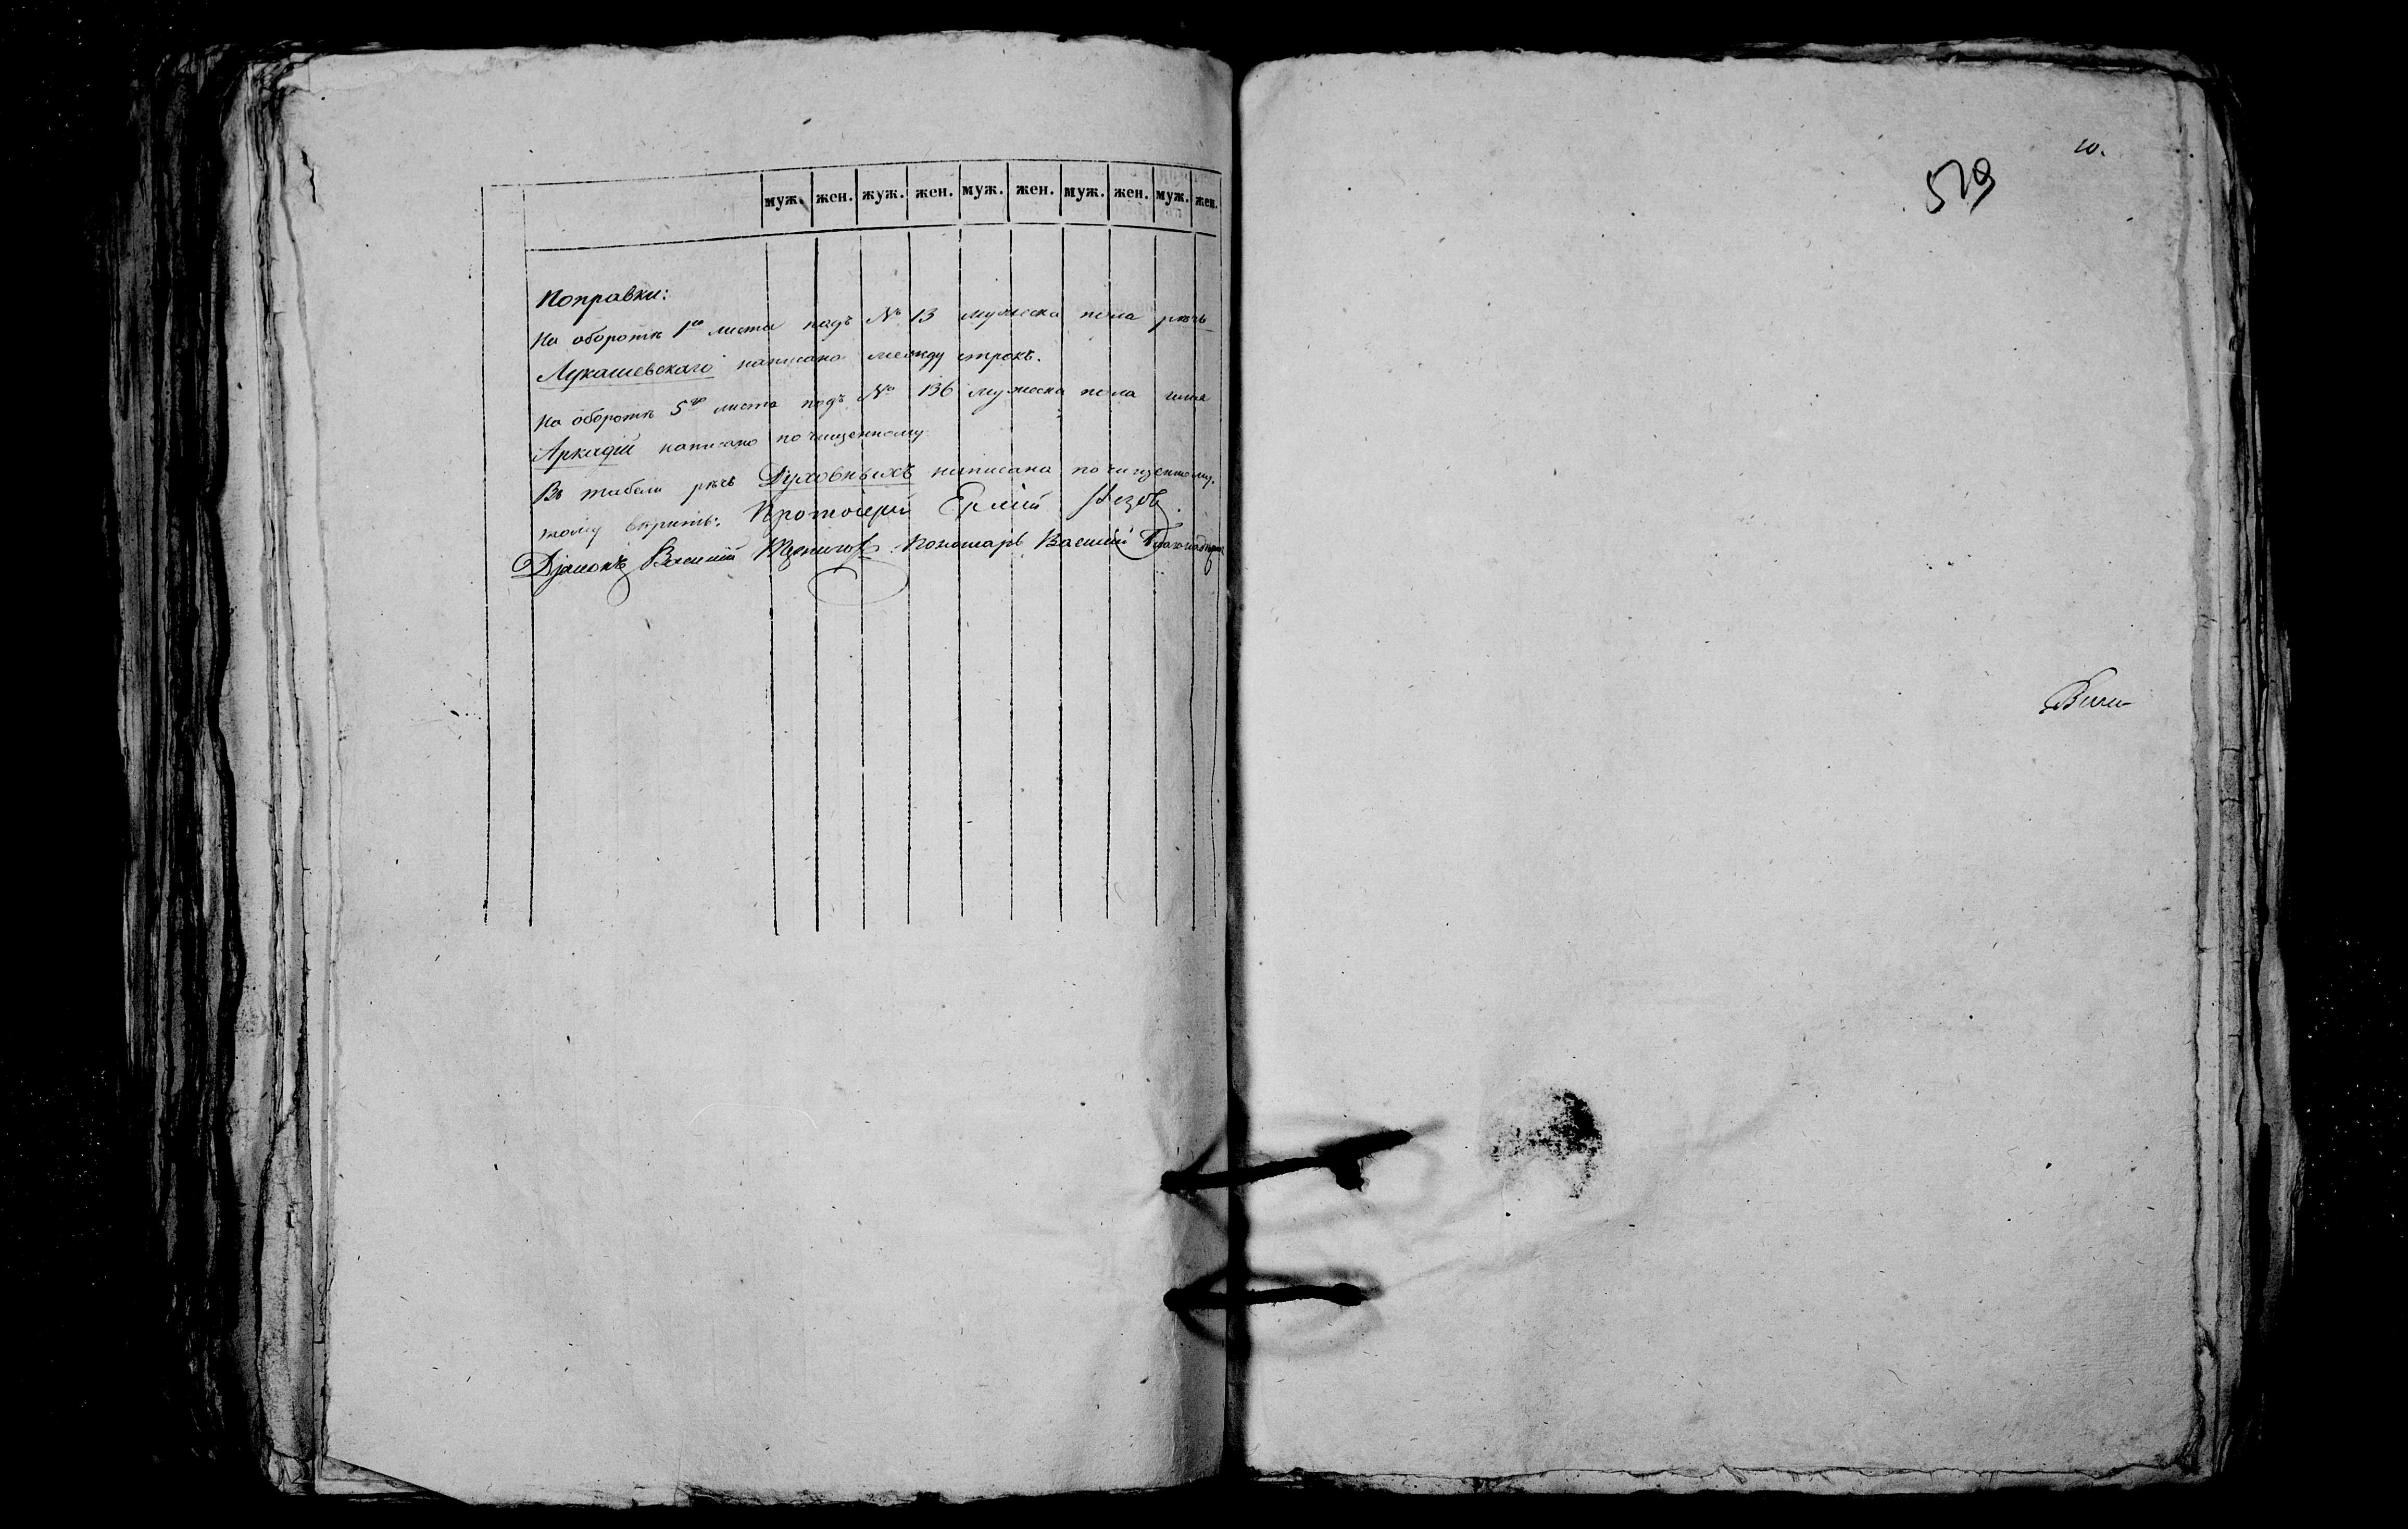 муж. жен. жуж. жен. муж. жен. муж. жен. муж. жен.
Поправки:
На оборотѣ 1го листа подъ № 13 мужеска пола рѣчь
Лукашевскаго написано между строкъ.
На оборотѣ 5го листа подъ № 136 мужеска пола имя
Аркадій написано по чищенному
Въ табели рѣчь Духовныхъ написана по чищенному.
тому вѣрить: Протоіерей
Діаконъ Василій Пономарь Василій
10.
529